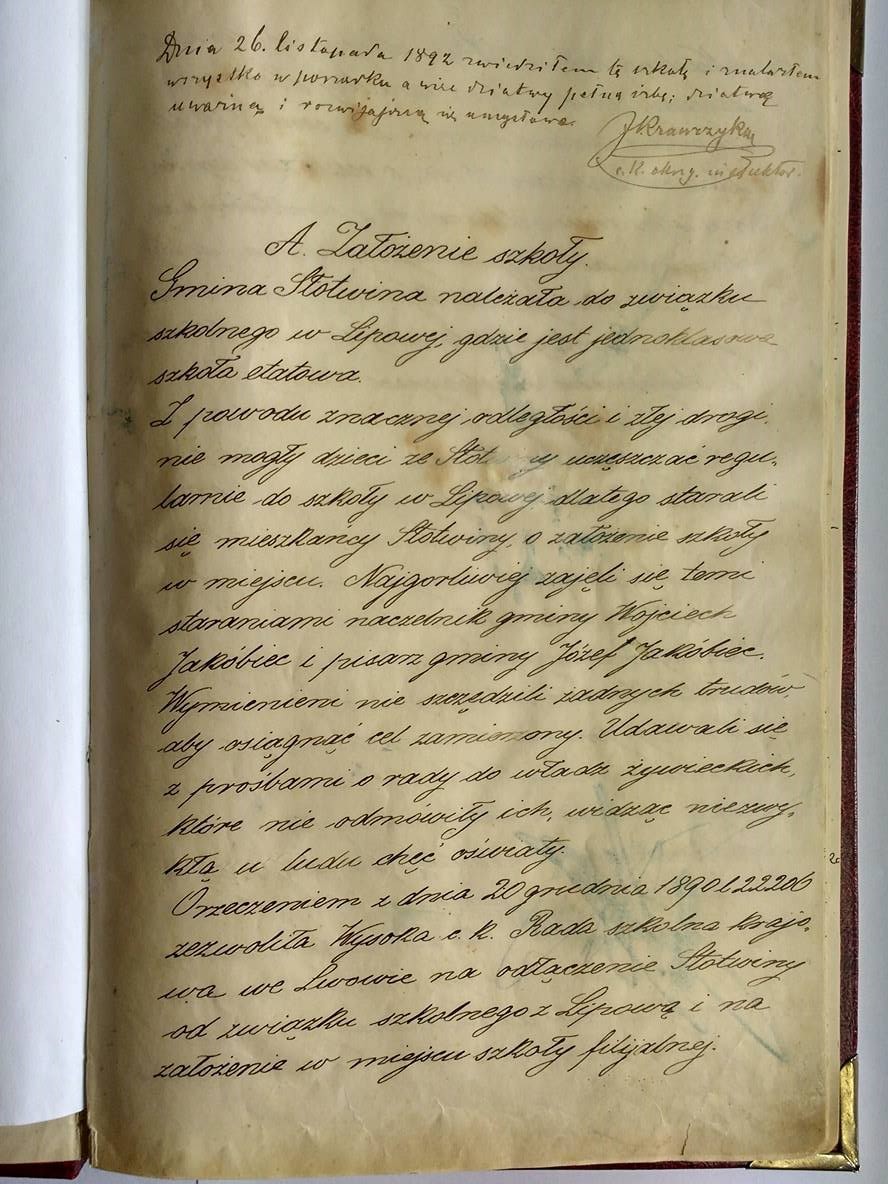 Dnia 26. listopada 1892 zwiedziłem tę szkołę i znalazłem
wszystko w porządku a więc dziatwy pełną izbę; dziatwę
uważną i rozwijającą się umysłowo.
JKrawczyk
c. k. okrąg. inspektor.
A. Założenie szkoły.
Gmina Słotwina należała do związku
szkolnego w Lipowej, gdzie jest jednoklasowa
szkoła etatowa.
Z powodu znacznej odległości i złej drogi,
nie mogły dzieci ze uczęszczać regu-
larnie do szkoły w Lipowej dlatego starali
się mieszkańcy Słotwiny, o założenie szkoły
w miejscu. Najgorliwiej zajęli się temi
staraniami naczelnik gminy Wojciech
Jakóbiec i pisarz gminy Józef Jakóbiec.
Wymienieni nie szczędzili żadnych trudów,
aby osiągnąć cel zamierzony. Udawali się
z prośbami o rady do władz żywieckich,
które nie odmówiły ich, widząc niezwy-
kłą u ludu chęć oświaty.
Orzeczeniem z dnia 20 grudnia 1890 l 22206
zezwoliła Wysoka c. k. Rada szkolna krajo-
wa we Lwowie na odłączenie Słotwiny
od związku szkolnego z Lipową i na
założenie w miejscu szkoły filijalnej.